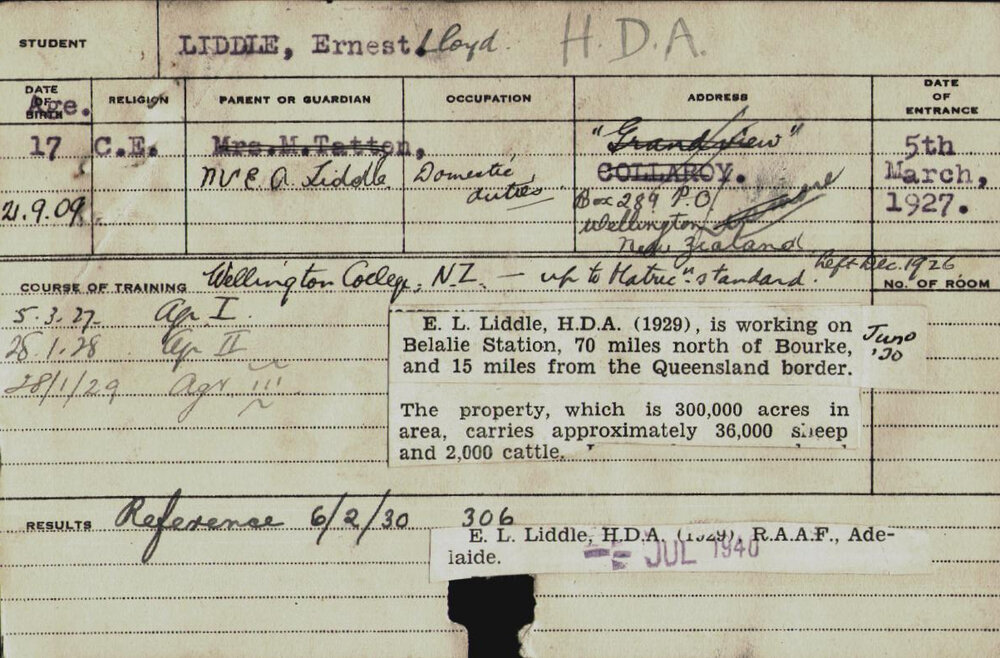 STUDENT LIDDLE, Ernest Lloyd. H.D.A.
DATE OF BIRTH Age. RELIGION PARENT OR GUARDIAN OCCUPATION ADDRESS DATE OF ENTRANCE
17 C.E. Mrs.M.Tatton, "Grand View" 5th
Domestic COLLAROY. March,
A. Liddle duties Box 289 P.O. 1927.
21.9.09 Wellington
New Zealand
COURSE OF TRAINING Wellington College, N.Z. — up to Matric" standard. Left Dec. 1926
NO. OF ROOM
5.3.27 Agr I
28.1.28 Agr II
28/1/29 Agr III
E. L. Liddle, H.D.A. (1929), is working on
Belalie Station, 70 miles north of Bourke,
and 15 miles from the Queensland border.
June
'30
The property, which is 300,000 acres in
area, carries approximately 36,000 sheep
and 2,000 cattle.
RESULTS Reference 6/2/30 306
E. L. Liddle, H.D.A. (1929), R.A.A.F., Ade-
laide.
JUL 1940